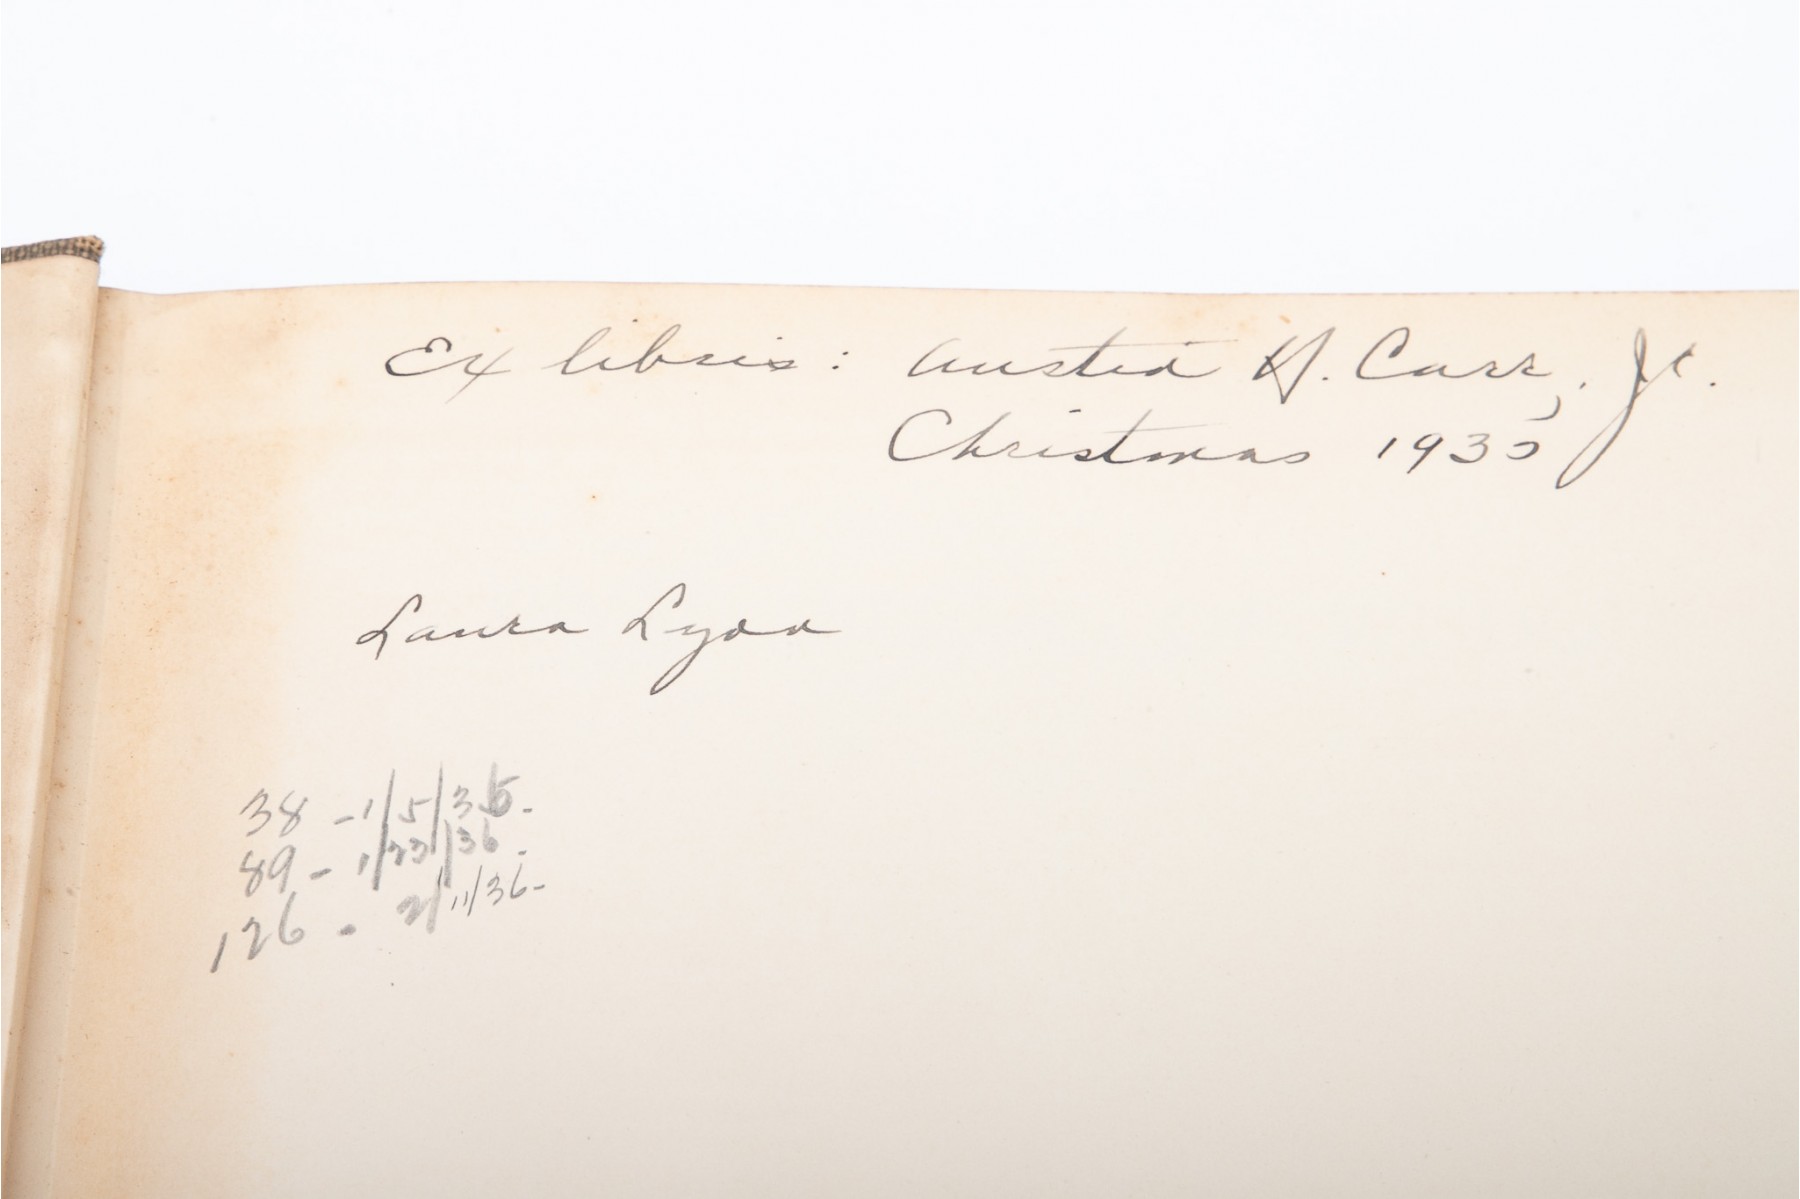 Ex libris: Austin H. Carr, Jr.
Christmas 1935
Laura Lyon
38 - 1/5/36.
89 - 1/23/36.
126 - 2/11/36-